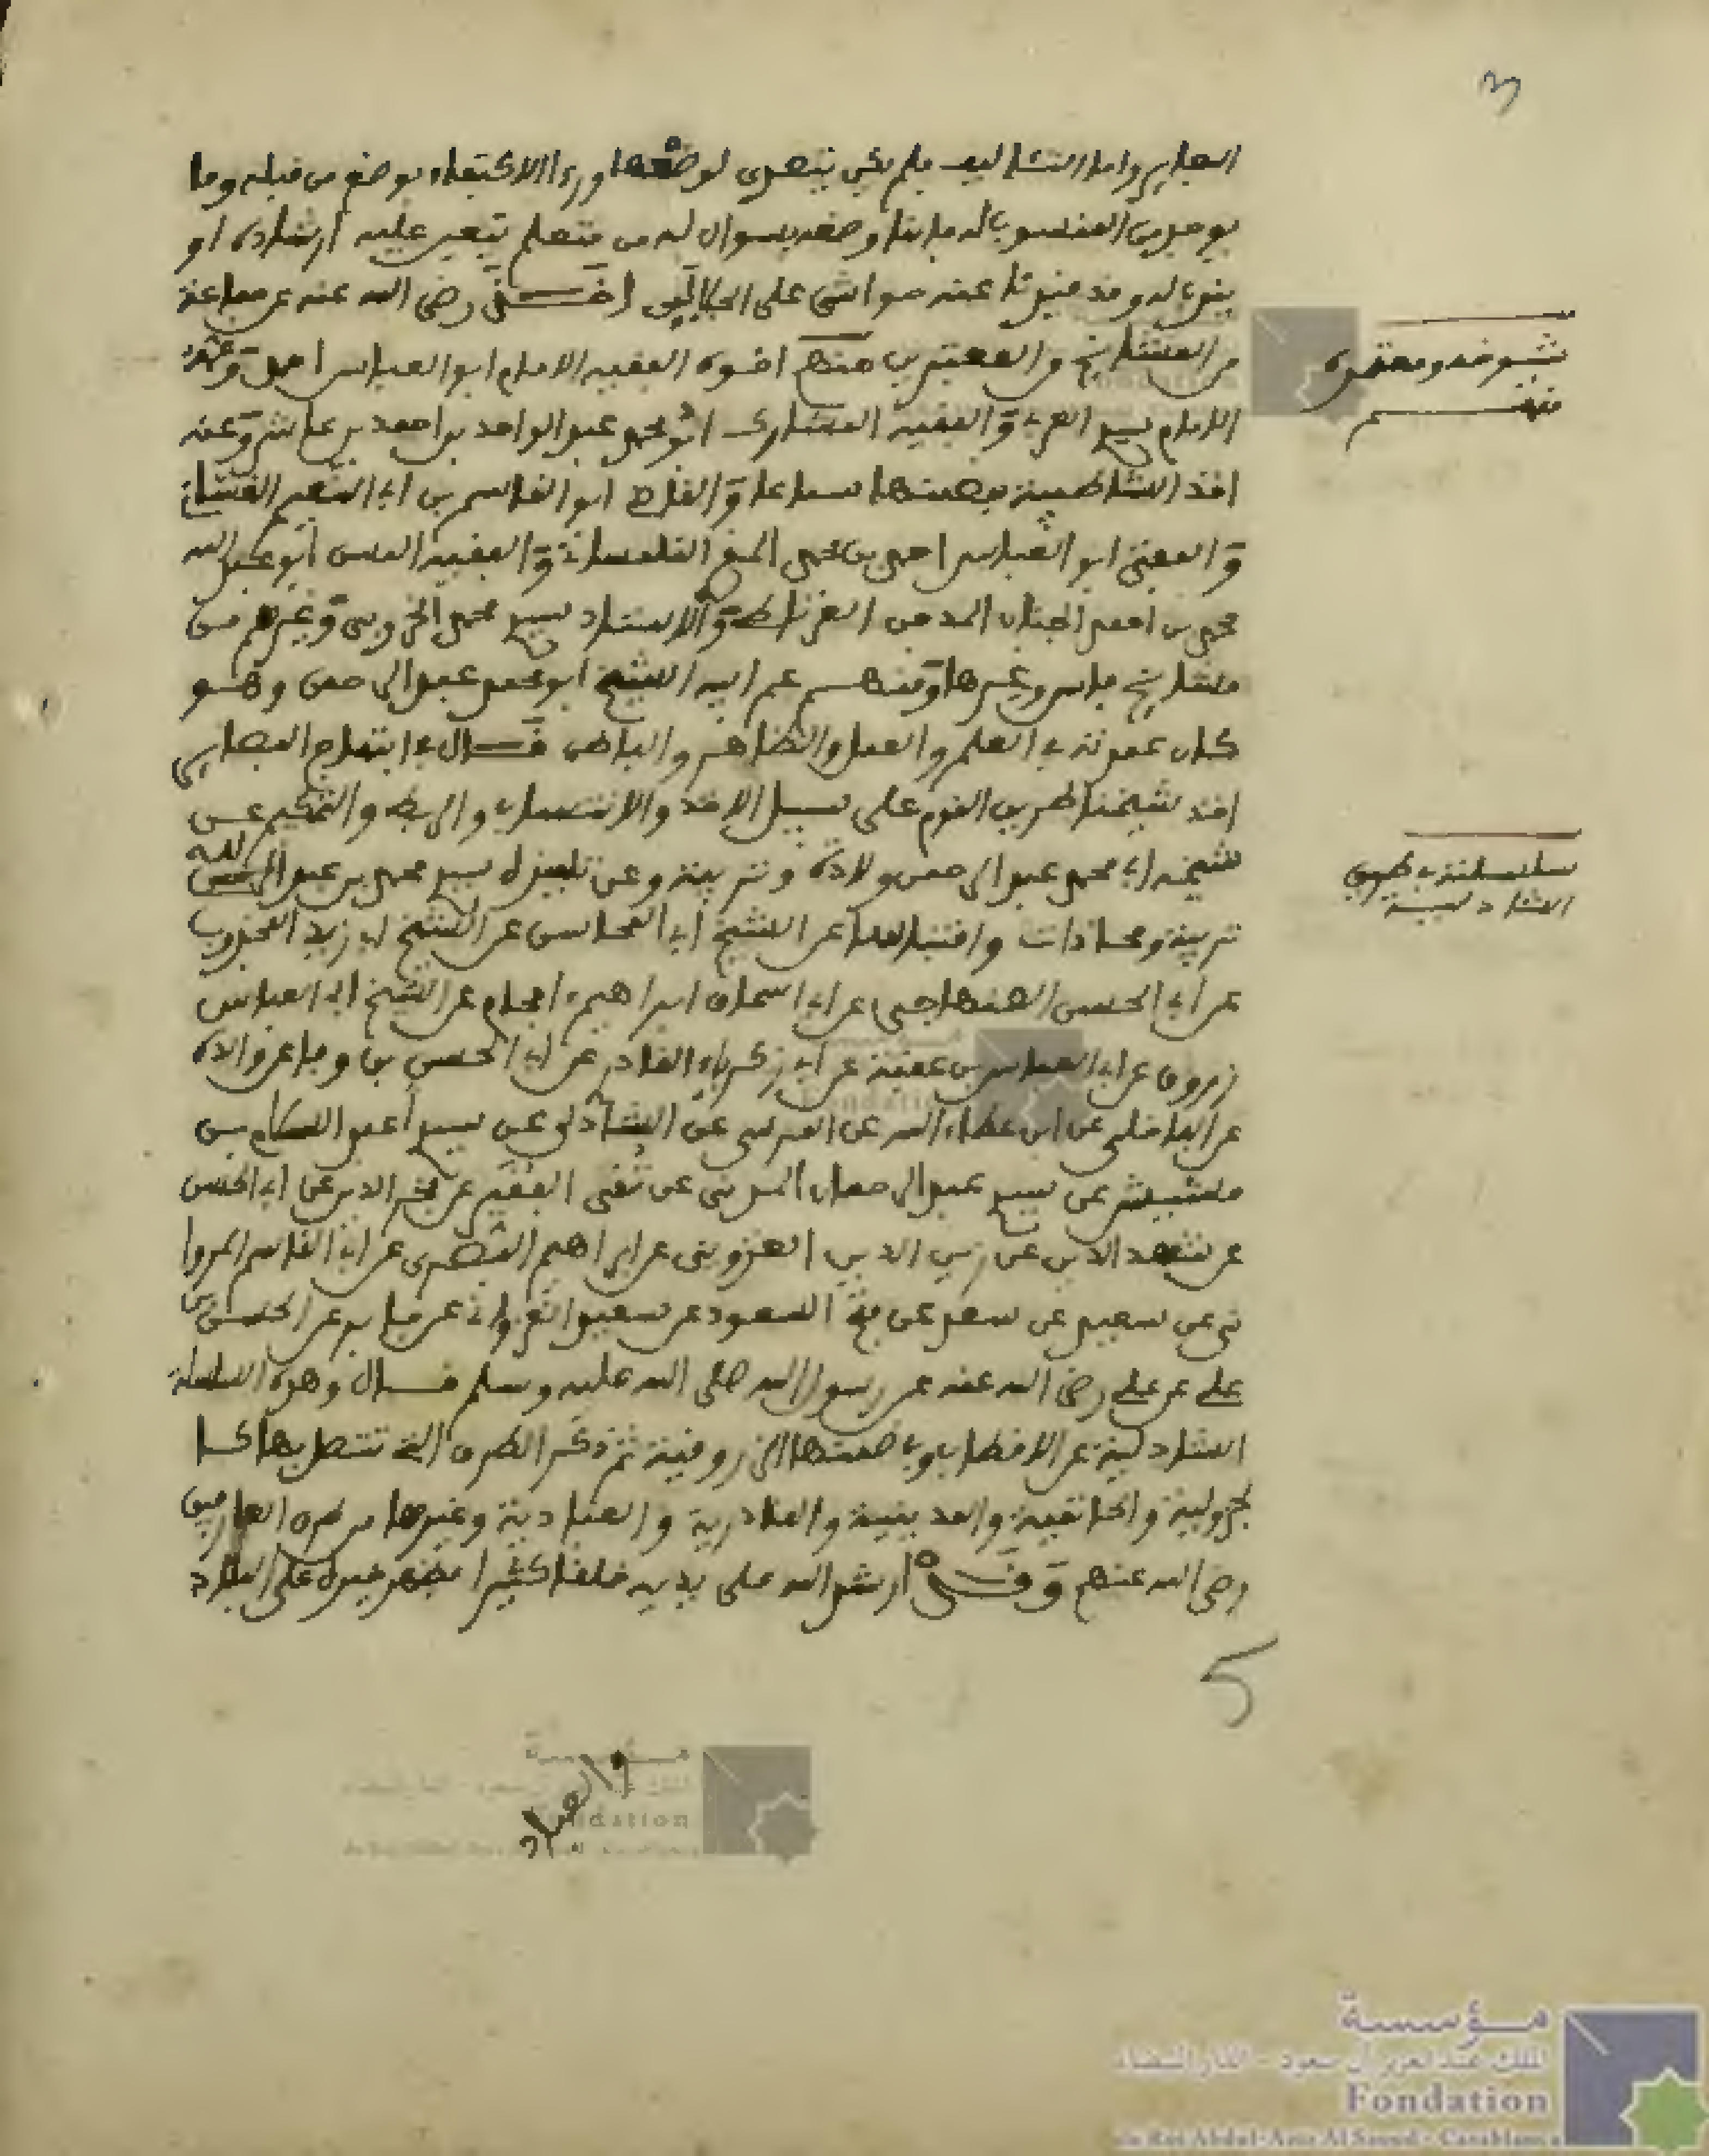 3
واما التئاليف فلم يكن يتصدى لوضعها وراا الاكتفاء بوضع من قبله وما
يوجد من المنسوب له فإنما وضعه بسوال له من متعلم تتعين عليه ارشاده او
وقد قيدنا عنه حواشي على الجلالين اخــذ رضي الله عنه عن جماعة
من المشايخ والمعتبرين منهم اخوه الفقيه الامام ابو العباس احمد
الامام سيدي العربي والفقيه المشارك ابو محمد عبد الواحد بن احمد بن عاشر وعنه
اخذ الشاطبية سماعا والقاضي ابو القاسم بن ابي النعيم الغساني
والمفتي ابو العباس احمد بن محمد المقري التلمساني والفقيه ابو عبد الله
محمد بن احمد الجنان الغرناطي والاستاذ سيدي محمد الخروبي وغيرهم من
مشايخ فاس وغيرها ومنهم عم ابيه الشيخ ابو محمد عبد الرحمن وهو
كان عمدته في العلم والعمل والظاهر والباطن قــال في ابتهاج البصاير
اخذ شيخنا طريق القوم على سبيل الاخذ والانتساب والربط والتحكيم عن
شيخه ابي محمد عبد الرحمن ولادة وتربية وعن تلميذه سيدي محمد بن عبد الله
تربية ومحاذات واقتباسا عن الشيخ ابي المحاسن عن الشيخ ابي زيد المجذوب
عن ابي الحسن الصنهاجي عن ابي اسحاق ابراهيم افحام عن الشيخ ابي العباس
زروق عن ابي العباس بن عقبة عن ابي زكرياء القادري عن ابي الحسن بن وفا عن والده
عن الباخلي عن ابن عطاء الله عن المرسي عن الشاذلي عن سيدي عبد السلام بن
مشيش عن سيدي عبد الرحمان المدني عن تقي الفقير عن فخر الدين عن ابي الحسن
عن شمس الدين عن زين الدين القزويني عن ابراهيم البصري عن ابي القاسم المروا
ني عن سعيد عن سعد عن فتح السعود عن سعيد الغزواني عن جابر عن الحسن بن
علي عن علي رضي الله عنه عن رسول الله صلى الله عليه وسلم قــال وهذه السلسلة
الشاذلية عن الاقطاب وباضمنها الزروقية ثم ذكر الطرق التي تتصل بها كا
لجزولية والحاتمية والمدينية والقادرية والعبادية وغيرها من طرق العارفين
رضي الله عنهم وقــد ارشد الله على يديه خلقا كثيرا على البلاد
والعباد
شيوخه ومعتمده
منهــم
سلسلته في طريق
الشاذلية
5
مؤسسة
الملك عبد العزيز آل سعود - الدار البيضاء
Fondation
du Roi Abdul-Aziz Al Saoud - Casablanca